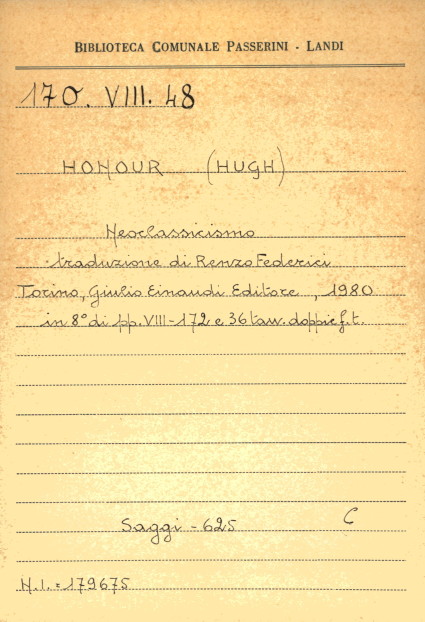 BIBLIOTECA COMUNALE PASSERINI - LANDI
170. VIII. 48
HONOUR (HUGH)
Neoclassicismo
traduzione di Renzo Federici
Torino, Giulio Einaudi Editore, 1980
in 8° di pp. VIII-172 e 36 tav. doppie f.t.
Saggi - 625 C
N.I. = 179675